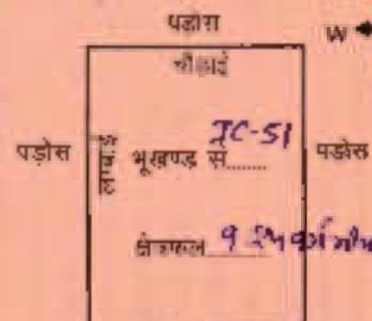 पड़ोस
W
चौड़ाई
पड़ोस लम्बाई भूखण्ड सं........ IC-51 पड़ोस
क्षेत्रफल 9